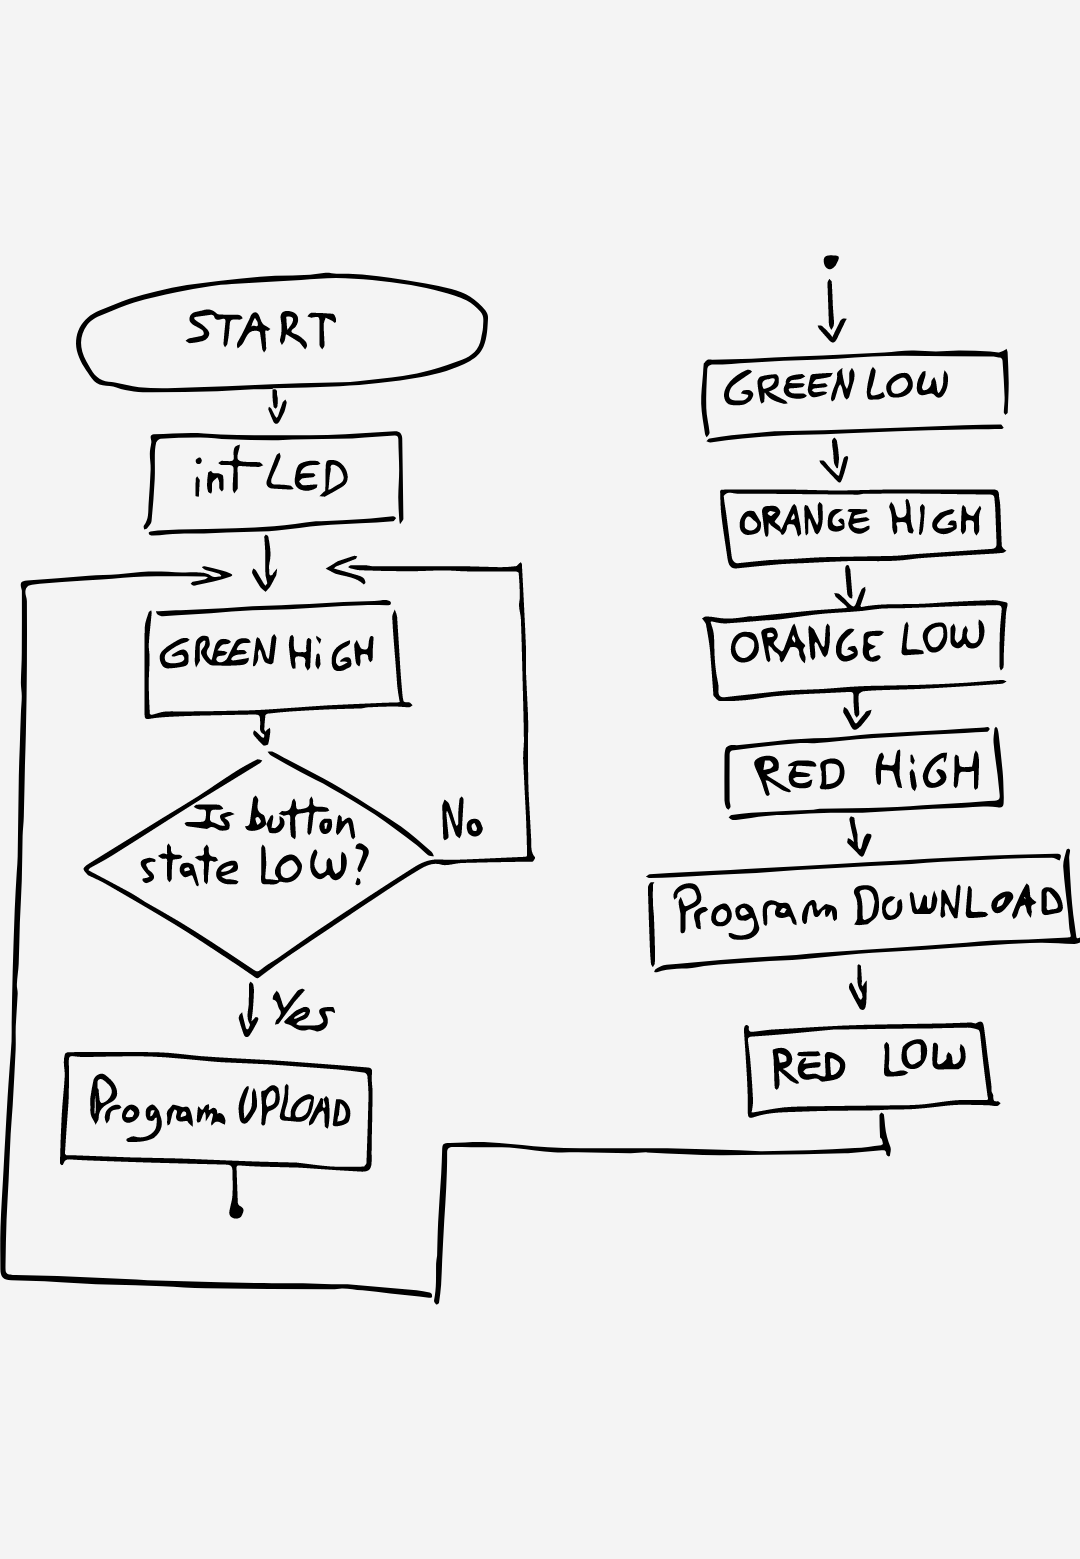 START
int LED
GREEN HiGH
Is button
state LOW?
No
Yes
Program UPLOAD
GREEN LOW
ORANGE HIGH
ORANGE LOW
RED HiGH
Program DOWNLOAD
RED LOW